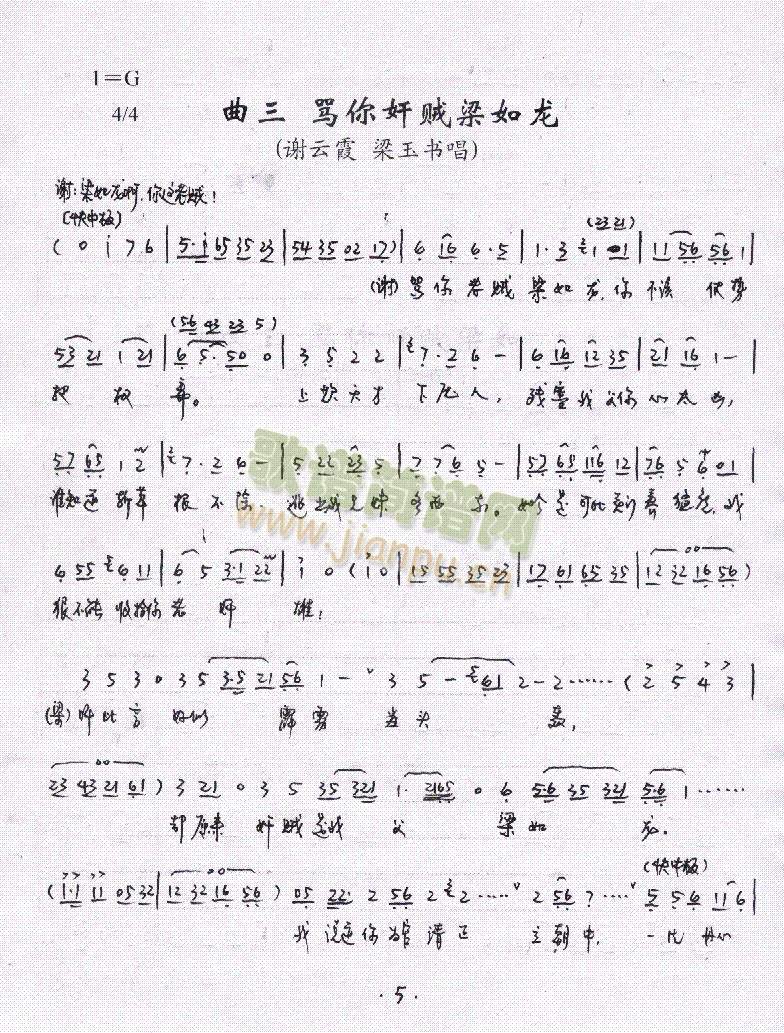 1=G
4/4
曲三 骂你奸贼梁如龙
(谢云霞 梁玉书唱)
谢：梁如龙啊，你这老贼！
(快中板)
(0 i 7 6 | 5·i 65 35 23 | 54 35 02 17) | 6 16 6·5 | 1·3 1 01 | 11 56 56 1 |
(23 21)
(谢) 骂你老贼梁如龙，你不该仗势
(56 43 23 5)
53 21 1 21 | 6 5·50 0 | 3 5 2 2 | 7·2 6 - | 6 16 12 35 | 21 16 1 - |
把权弄。上欺天才下压人，残害我父你心太凶，
57 65 1 2 | 7·2 6 - | 5 22 23 5 | 7 76 5 - | 57 65 116 12 | 76 5 6 01 |
谁知道斩草根不除，逃出我兄妹
6 55 6 11 | 6 5 3·1 22 | i 0 (i 0) | 15 55 35 23 | 17 61 65 35 | 12 32 16 56)
恨不能
3 5 3 0 3 5 3·5 21 56 1 - 3 5 - 61 2 - 2 ······ (2 5 4 3 |
(梁) 听此言好似霹雳当头轰，
23 43 21 61) 3 21 0 3 5 35 321 1· 2165 0 6 56 35 321 5·6 1 ······
却原来奸贼是我父梁如龙。
(快中板)
(1·1 11 05 32 | 12 32 16 56) 05 22· 2 56 2 2 ····· 2 56 7 ····· 5 5 6 11 6 |
我说道你为官清正立朝中，一片丹心
· 5 ·
www.jianpu.cn